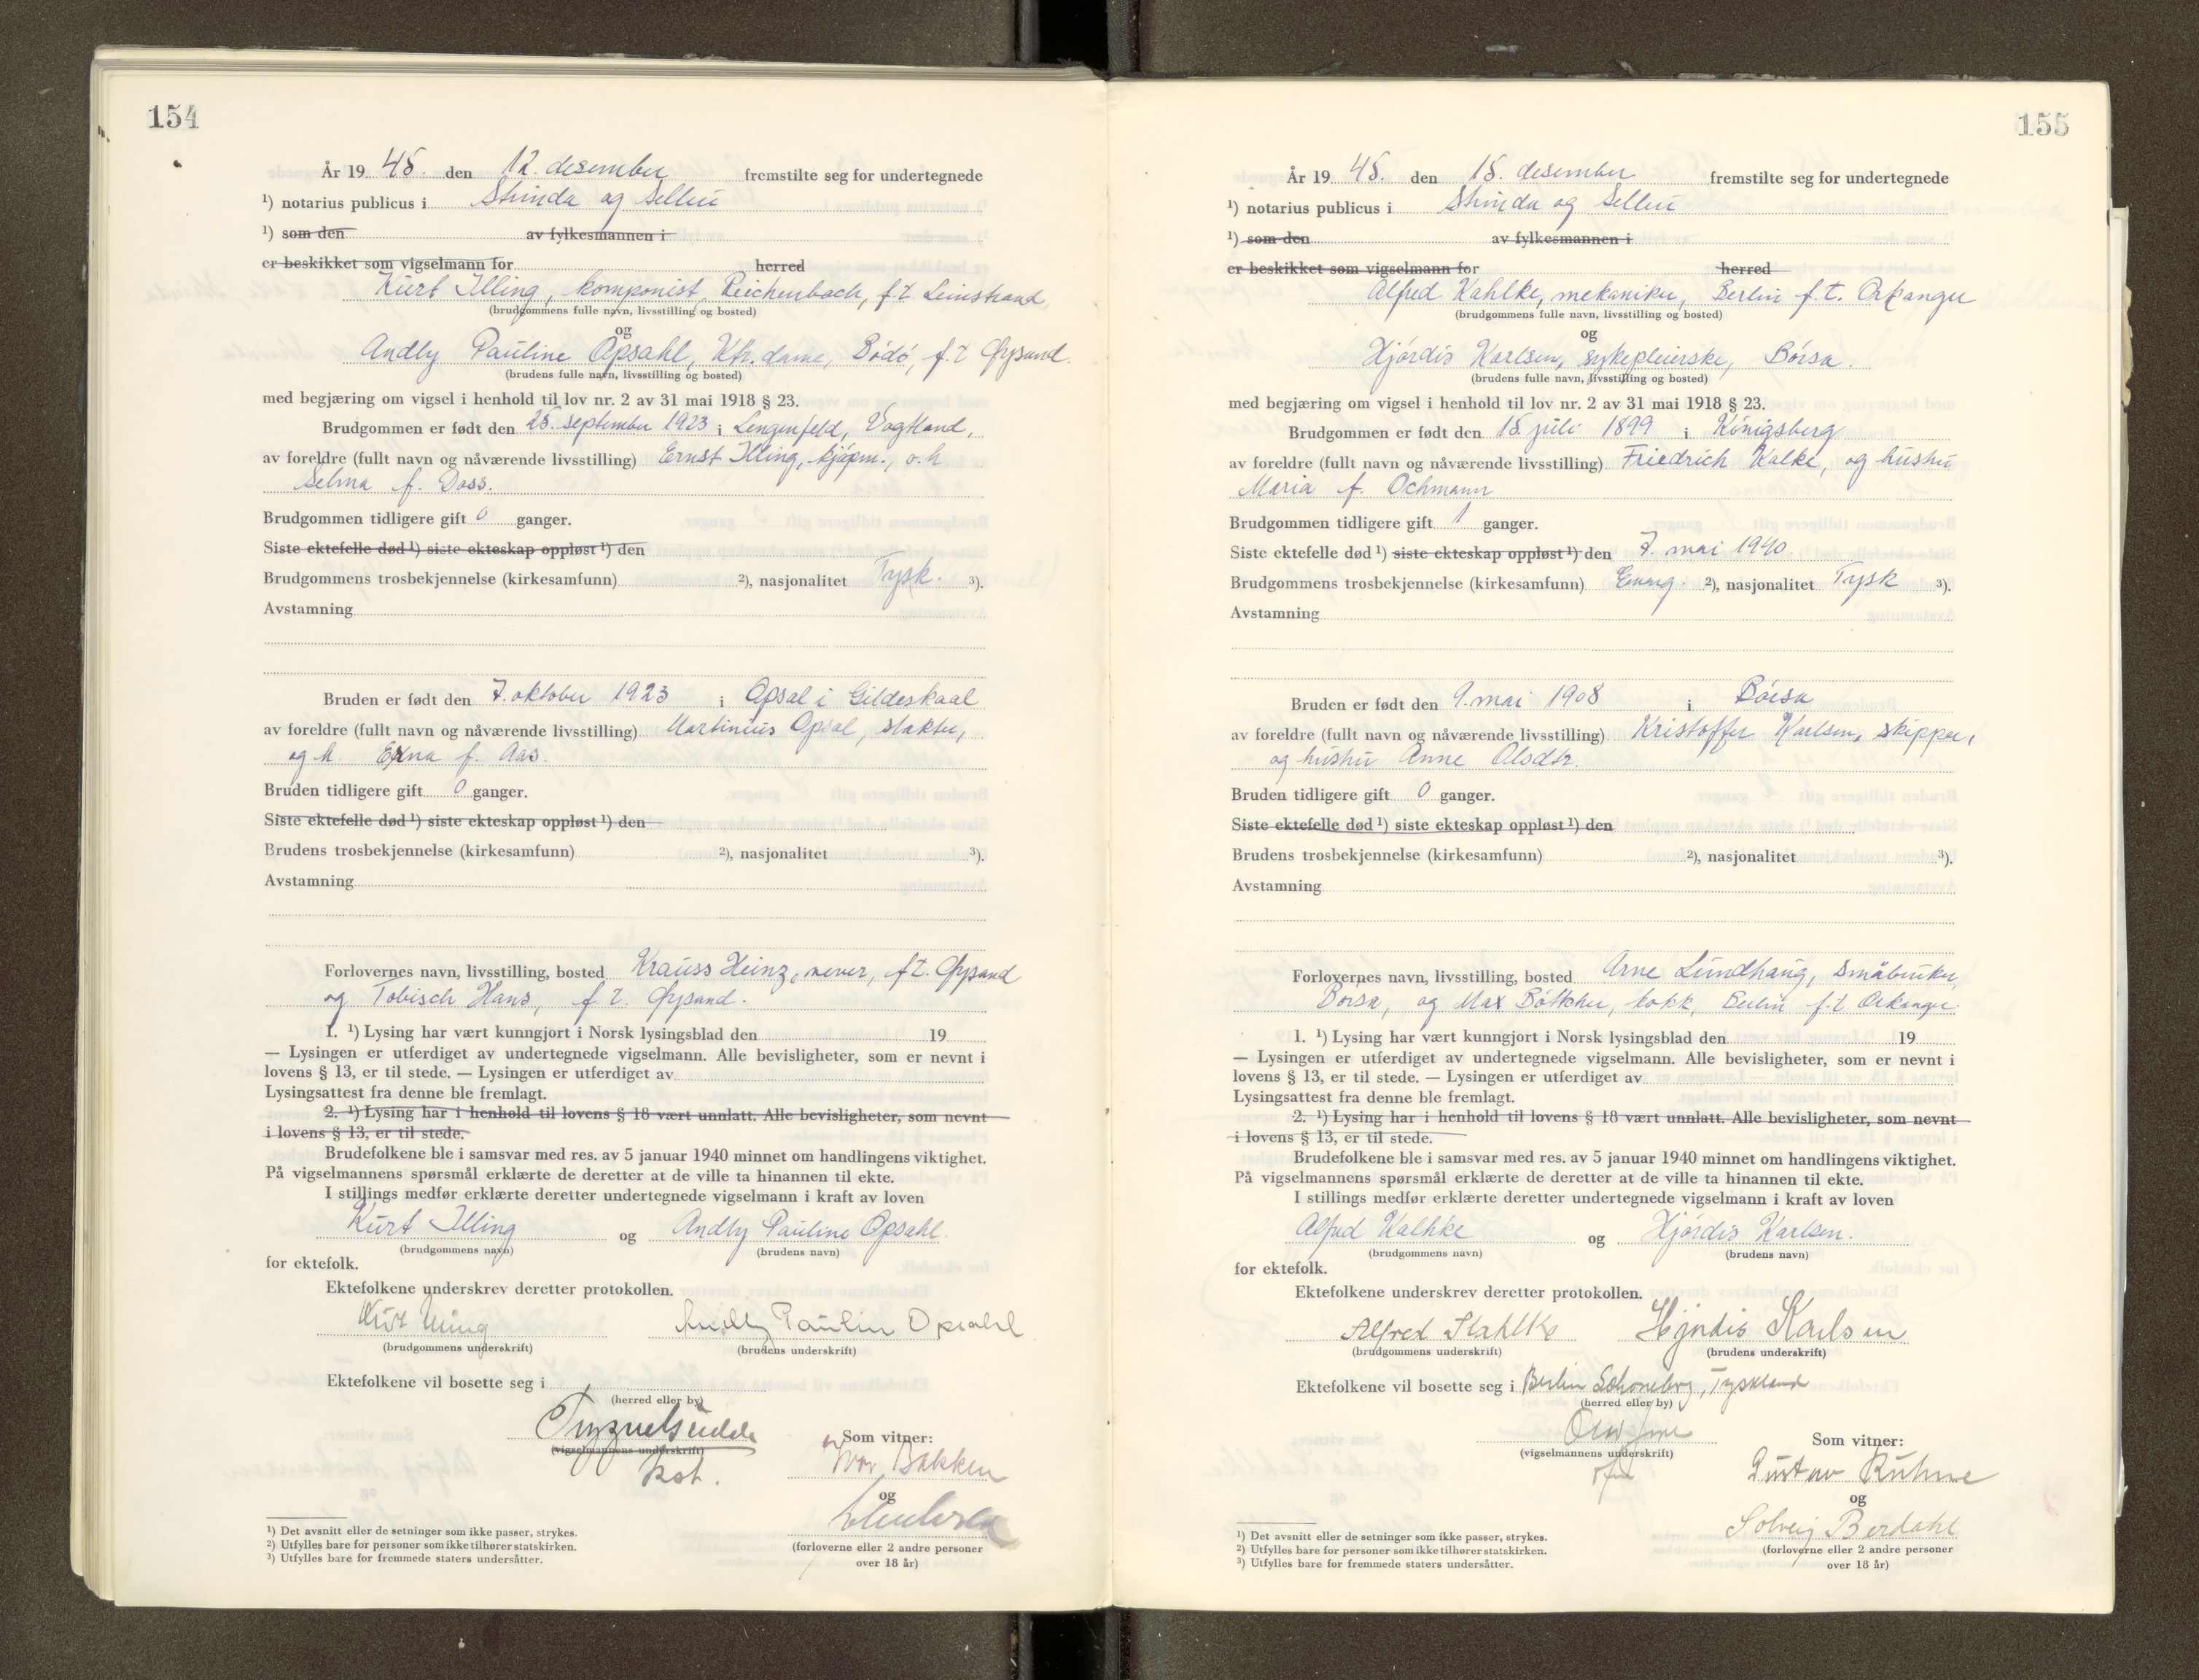 154
År 19 45. den 12. desember fremstilte seg for undertegnede
¹) notarius publicus i Strinda og Selbu
¹) som den av fylkesmannen i
er beskikket som vigselmann for herred
Kurt Illing, komponist, Reichenbach, f.t. Leinstrand,
(brudgommens fulle navn, livsstilling og bosted)
og
Andly Pauline Opsahl, Ktr.dame, Bodö, f.t. Øysand.
(brudens fulle navn, livsstilling og bosted)
med begjæring om vigsel i henhold til lov nr. 2 av 31 mai 1918 § 23.
Brudgommen er født den 25. september 1923 i Lengenfeld, Vogtland,
av foreldre (fullt navn og nåværende livsstilling) Ernst Illing, kjøpm., o.h.
Selma f. Doss.
Brudgommen tidligere gift 0 ganger.
Siste ektefelle død ¹) siste ekteskap oppløst ¹) den
Brudgommens trosbekjennelse (kirkesamfunn) ²), nasjonalitet Tysk. ³).
Avstamning
Bruden er født den 7. oktober 1923 i Opsal i Gildeskaal
av foreldre (fullt navn og nåværende livsstilling) Martinius Opsal, slakter,
og h. Erna f. Aas.
Bruden tidligere gift 0 ganger.
Siste ektefelle død ¹) siste ekteskap oppløst ¹) den
Brudens trosbekjennelse (kirkesamfunn) ²), nasjonalitet ³).
Avstamning
Forlovernes navn, livsstilling, bosted Krauss Heinz, f.t. Øysand
og Tobisch Hans, f.t. Øysand.
1. ¹) Lysing har vært kunngjort i Norsk lysingsblad den 19
— Lysingen er utferdiget av undertegnede vigselmann. Alle bevisligheter, som er nevnt i
lovens § 13, er til stede. — Lysingen er utferdiget av
Lysingsattest fra denne ble fremlagt.
2. ¹) Lysing har i henhold til lovens § 18 vært unnlatt. Alle bevisligheter, som nevnt
i lovens § 13, er til stede.
Brudefolkene ble i samsvar med res. av 5 januar 1940 minnet om handlingens viktighet.
På vigselmannens spørsmål erklærte de deretter at de ville ta hinannen til ekte.
I stillings medfør erklærte deretter undertegnede vigselmann i kraft av loven
Kurt Illing og Andly Pauline Opsahl.
(brudgommens navn) (brudens navn)
for ektefolk.
Ektefolkene underskrev deretter protokollen.
Kurt Illing Andly Paulin Opsahl
(brudgommens underskrift) (brudens underskrift)
Ektefolkene vil bosette seg i
(herred eller by)
(vigselmannens underskrift)
Som vitner:
Ivar Bakken
og
(forloverne eller 2 andre personer
over 18 år)
¹) Det avsnitt eller de setninger som ikke passer, strykes.
²) Utfylles bare for personer som ikke tilhører statskirken.
³) Utfylles bare for fremmede staters undersåtter.
155
År 19 45. den 15. desember fremstilte seg for undertegnede
¹) notarius publicus i Strinda og Selbu
¹) som den av fylkesmannen i
er beskikket som vigselmann for herred
Alfred Kahlke, mekaniker, Berlin f.t. Orkanger
(brudgommens fulle navn, livsstilling og bosted)
og
Hjördis Karlsen, sykepleierske, Börsa.
(brudens fulle navn, livsstilling og bosted)
med begjæring om vigsel i henhold til lov nr. 2 av 31 mai 1918 § 23.
Brudgommen er født den 15. juli 1899 i Königsberg
av foreldre (fullt navn og nåværende livsstilling) Friedrich Kalke, og hustru
Maria f. Ochmann
Brudgommen tidligere gift 1 ganger.
Siste ektefelle død ¹) siste ekteskap oppløst ¹) den 7. mai 1940.
Brudgommens trosbekjennelse (kirkesamfunn) Evang. ²), nasjonalitet Tysk ³).
Avstamning
Bruden er født den 9. mai 1908 i Börsa
av foreldre (fullt navn og nåværende livsstilling) Kristoffer Karlsen, skipper,
og hustru Anne Olsdtr.
Bruden tidligere gift 0 ganger.
Siste ektefelle død ¹) siste ekteskap oppløst ¹) den
Brudens trosbekjennelse (kirkesamfunn) ²), nasjonalitet ³).
Avstamning
Forlovernes navn, livsstilling, bosted Arne Lundhaug, småbruker,
Börsa, og Max Böttcher, kokk, Berlin f.t. Orkanger.
1. ¹) Lysing har vært kunngjort i Norsk lysingsblad den 19
— Lysingen er utferdiget av undertegnede vigselmann. Alle bevisligheter, som er nevnt i
lovens § 13, er til stede. — Lysingen er utferdiget av
Lysingsattest fra denne ble fremlagt.
2. ¹) Lysing har i henhold til lovens § 18 vært unnlatt. Alle bevisligheter, som nevnt
i lovens § 13, er til stede.
Brudefolkene ble i samsvar med res. av 5 januar 1940 minnet om handlingens viktighet.
På vigselmannens spørsmål erklærte de deretter at de ville ta hinannen til ekte.
I stillings medfør erklærte deretter undertegnede vigselmann i kraft av loven
Alfred Kalhke og Hjördis Karlsen.
(brudgommens navn) (brudens navn)
for ektefolk.
Ektefolkene underskrev deretter protokollen.
Alfred Kahlke Hjördis Karlsen
(brudgommens underskrift) (brudens underskrift)
Ektefolkene vil bosette seg i Berlin Schöneberg, Tyskland
(herred eller by)
(vigselmannens underskrift)
Som vitner:
Gustav Kühne
og
Solveig Berdahl
(forloverne eller 2 andre personer
over 18 år)
¹) Det avsnitt eller de setninger som ikke passer, strykes.
²) Utfylles bare for personer som ikke tilhører statskirken.
³) Utfylles bare for fremmede staters undersåtter.